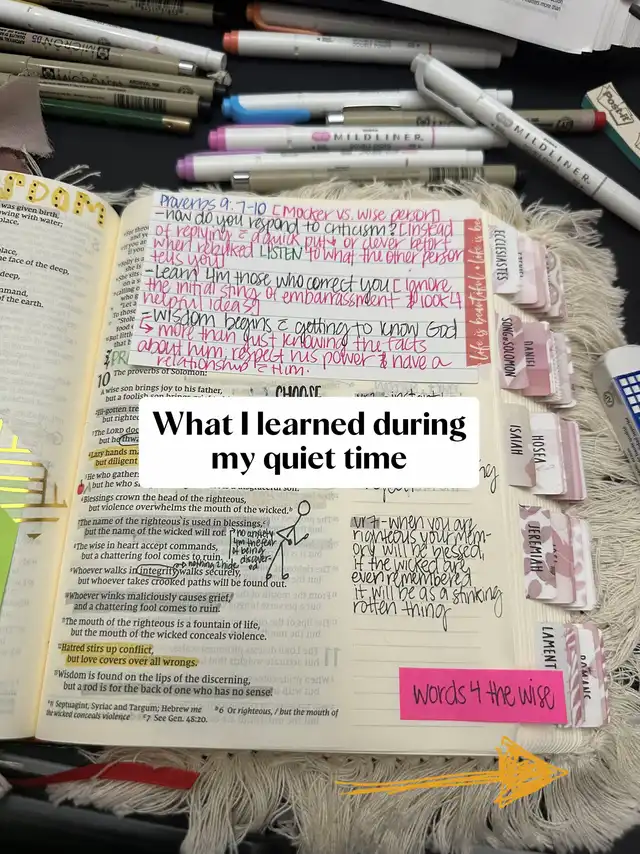 MILDLINER
MILDLINER
Post-it
SDOM
was given birth,
owing with water;
place,
e face of the deep,
deep,
mmand,
of the earth.
Proverbs 9:7-10 [Mocker vs. wise person]
-how do you respond to criticism? [instead
of replying
a quick put
or clever retort
when rebuked LISTEN to what the other person
tells you]
-Learn 4m those who correct you [ignore
the initial sting of embarrassment & look 4
helpful ideas]
-Wisdom begins
getting to know God
↳ more than just knowing the facts
about him, respect his power & have a
relationship
Him.
life is beautiful • life is be
ECCLESIASTES
SONG of SOLOMON
DANIEL
ISAIAH
HOSEA
JEREMIAH
LAMENT
PR
10 The proverbs of Solomon:
CHOOSE
A wise son brings joy to his father,
but a foolish son brings
Ill-gotten
but right
The LORD
but he
Lazy hands
but diligent
He who gathers
but he who
What I learned during
my quiet time
Blessings crown the head of the righteous,
but violence overwhelms the mouth of the wicked.
The name of the righteous is used in blessings,
but the name of the wicked will rot.
no anxiety
4m the fear
of being
discover-
ed
The wise in heart accept commands,
but a chattering fool comes to ruin.
nothing 2 hide
Whoever walks in integrity walks securely,
but whoever takes crooked paths will be found out.
Whoever winks maliciously causes grief,
and a chattering fool comes to ruin.
The mouth of the righteous is a fountain of life,
but the mouth of the wicked conceals violence.
Hatred stirs up conflict,
but love covers over all wrongs.
Wisdom is found on the lips of the discerning,
but a rod is for the back of one who has no sense.
8 Septuagint, Syriac and Targum; Hebrew me
the wicked conceals violence
7 See Gen. 48:20.
6 Or righteous, / but the mouth of
vr 7 - when you are
righteous your mem-
ory will be blessed,
if the wicked are
even remembered
it will be as a stinking
rotten thing
words 4 the wise